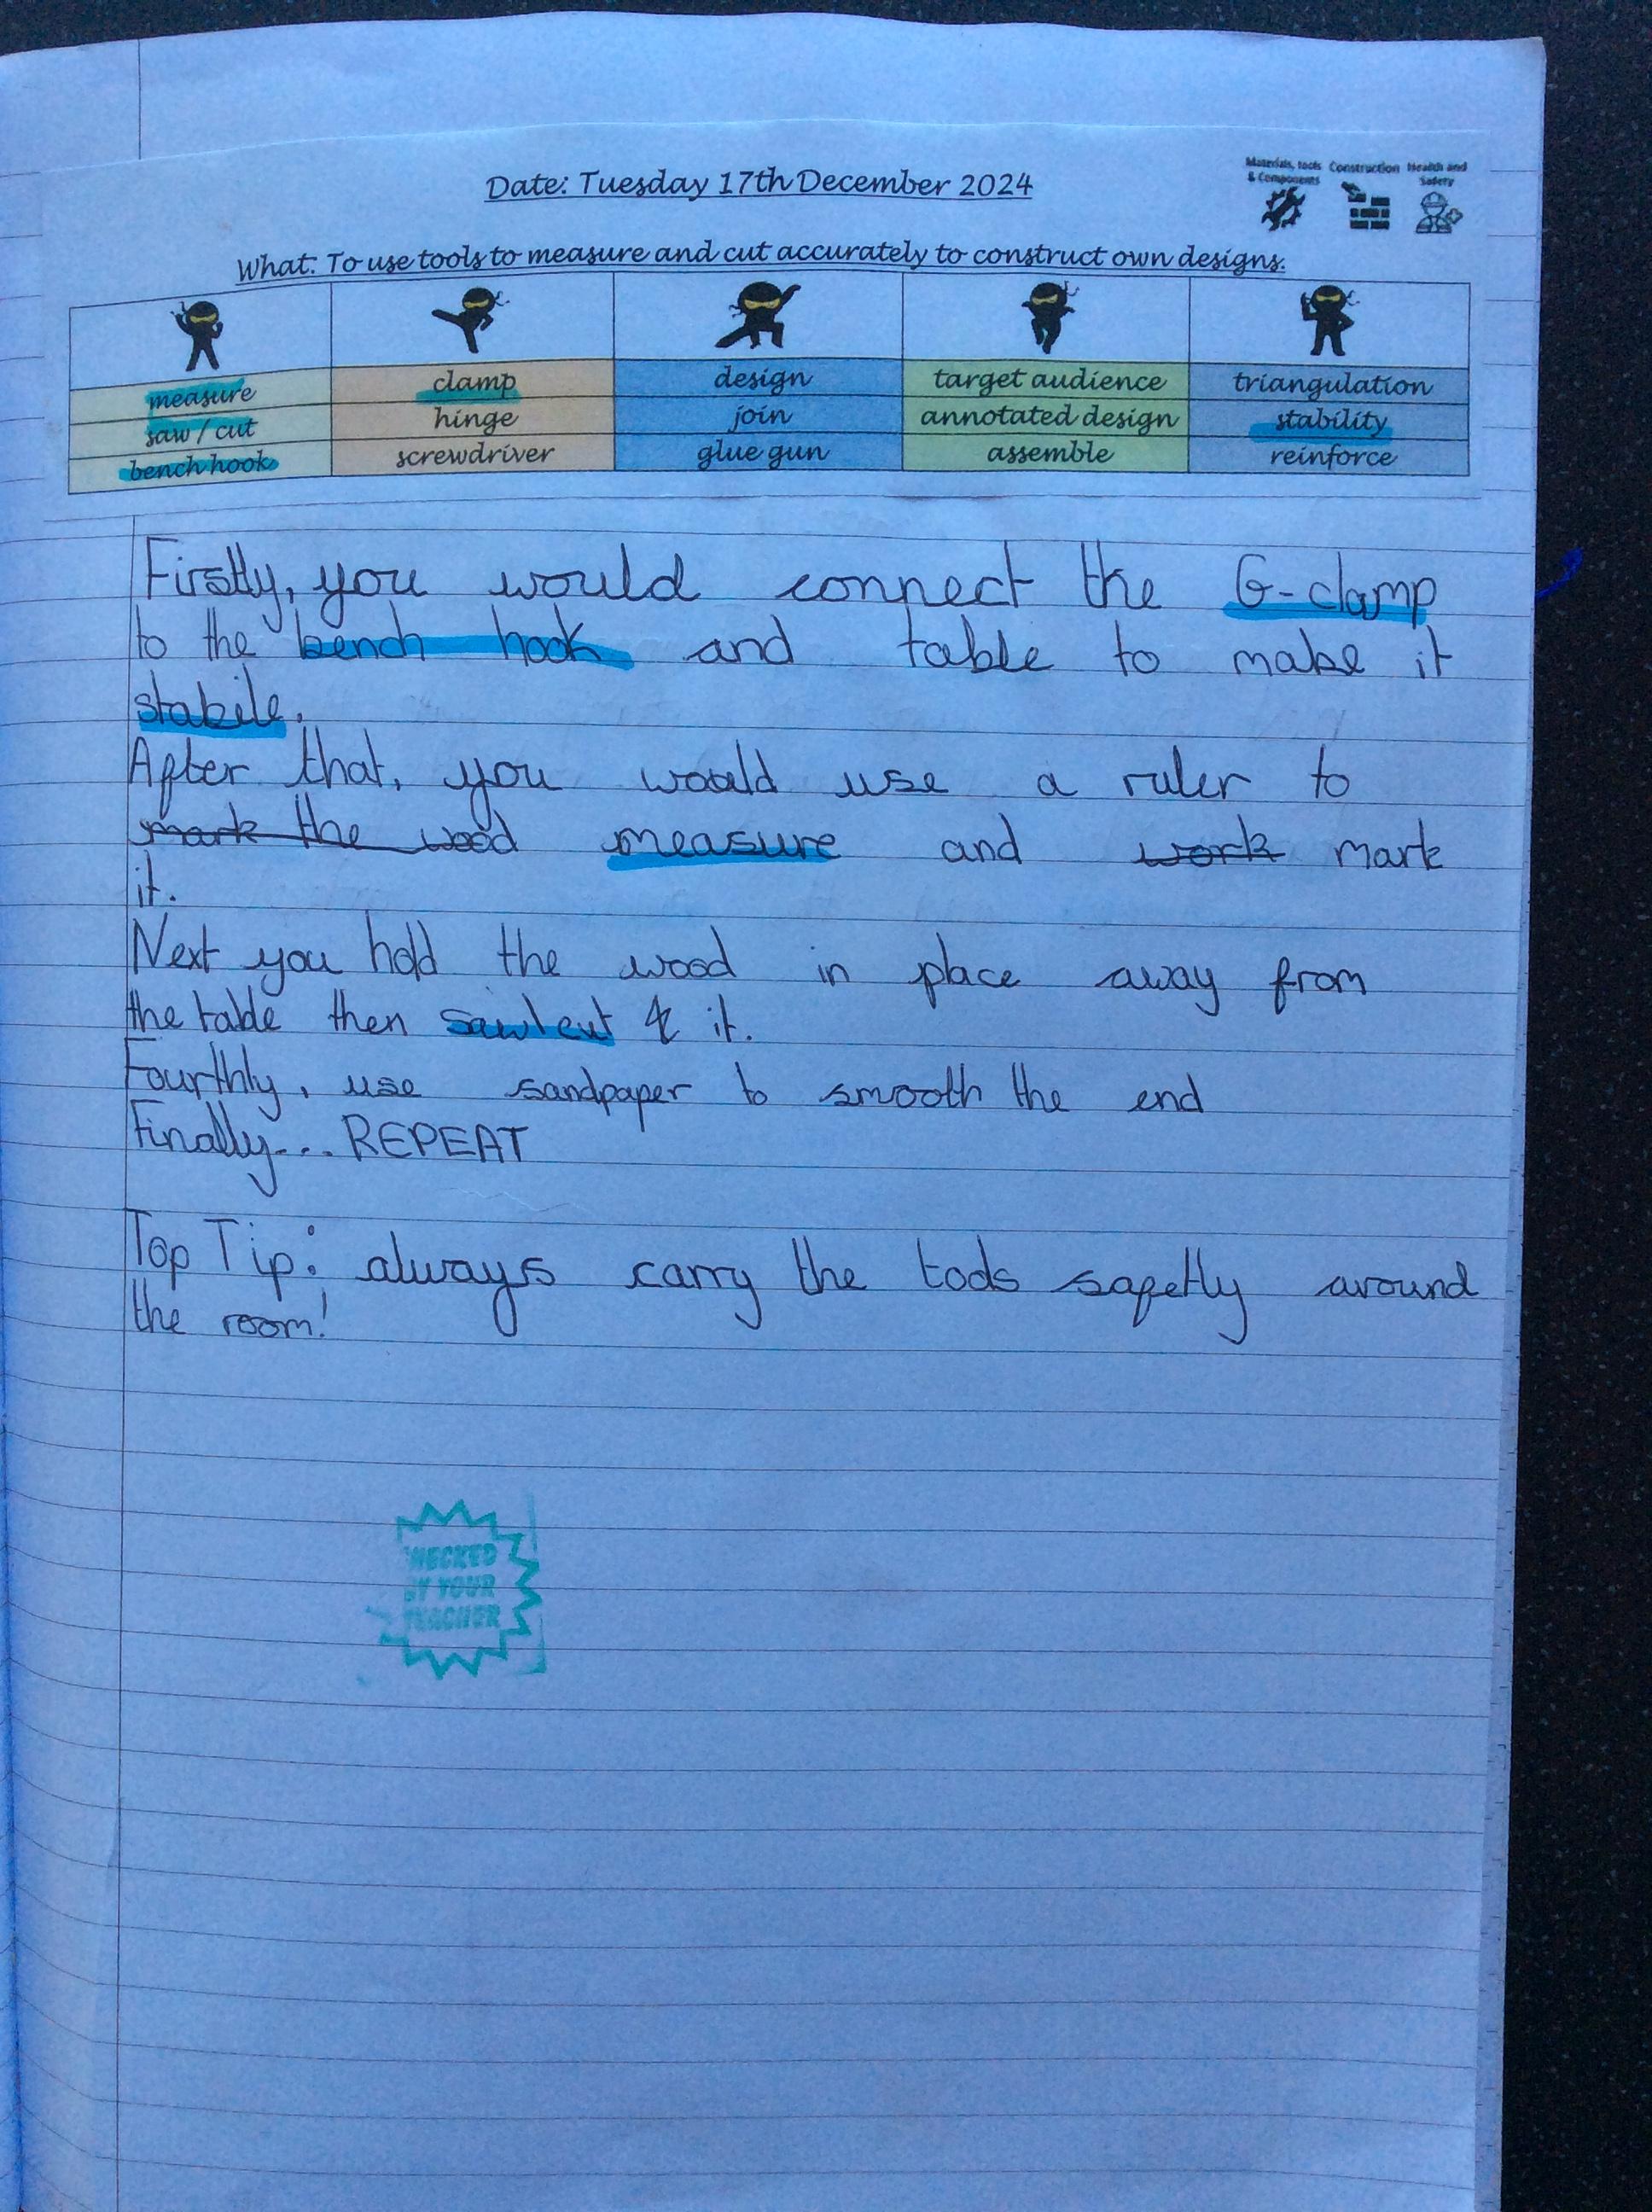 Materials, tools & Components Construction Health and Safety
Date: Tuesday 17th December 2024
What: To use tools to measure and cut accurately to construct own designs.
measure clamp design target audience triangulation
saw / cut hinge join annotated design stability
bench hook screwdriver glue gun assemble reinforce
Firstly, you would connect the G-clamp
to the bench hook and table to make it
stabile.
After that, you would use a ruler to
mark the wood measure and work mark
it.
Next you hold the wood in place away from
the table then saw/cut it.
Fourthly, use sandpaper to smooth the end
Finally... REPEAT
Top Tip: always carry the tools safetly around
the room!
CHECKED
BY YOUR
TEACHER